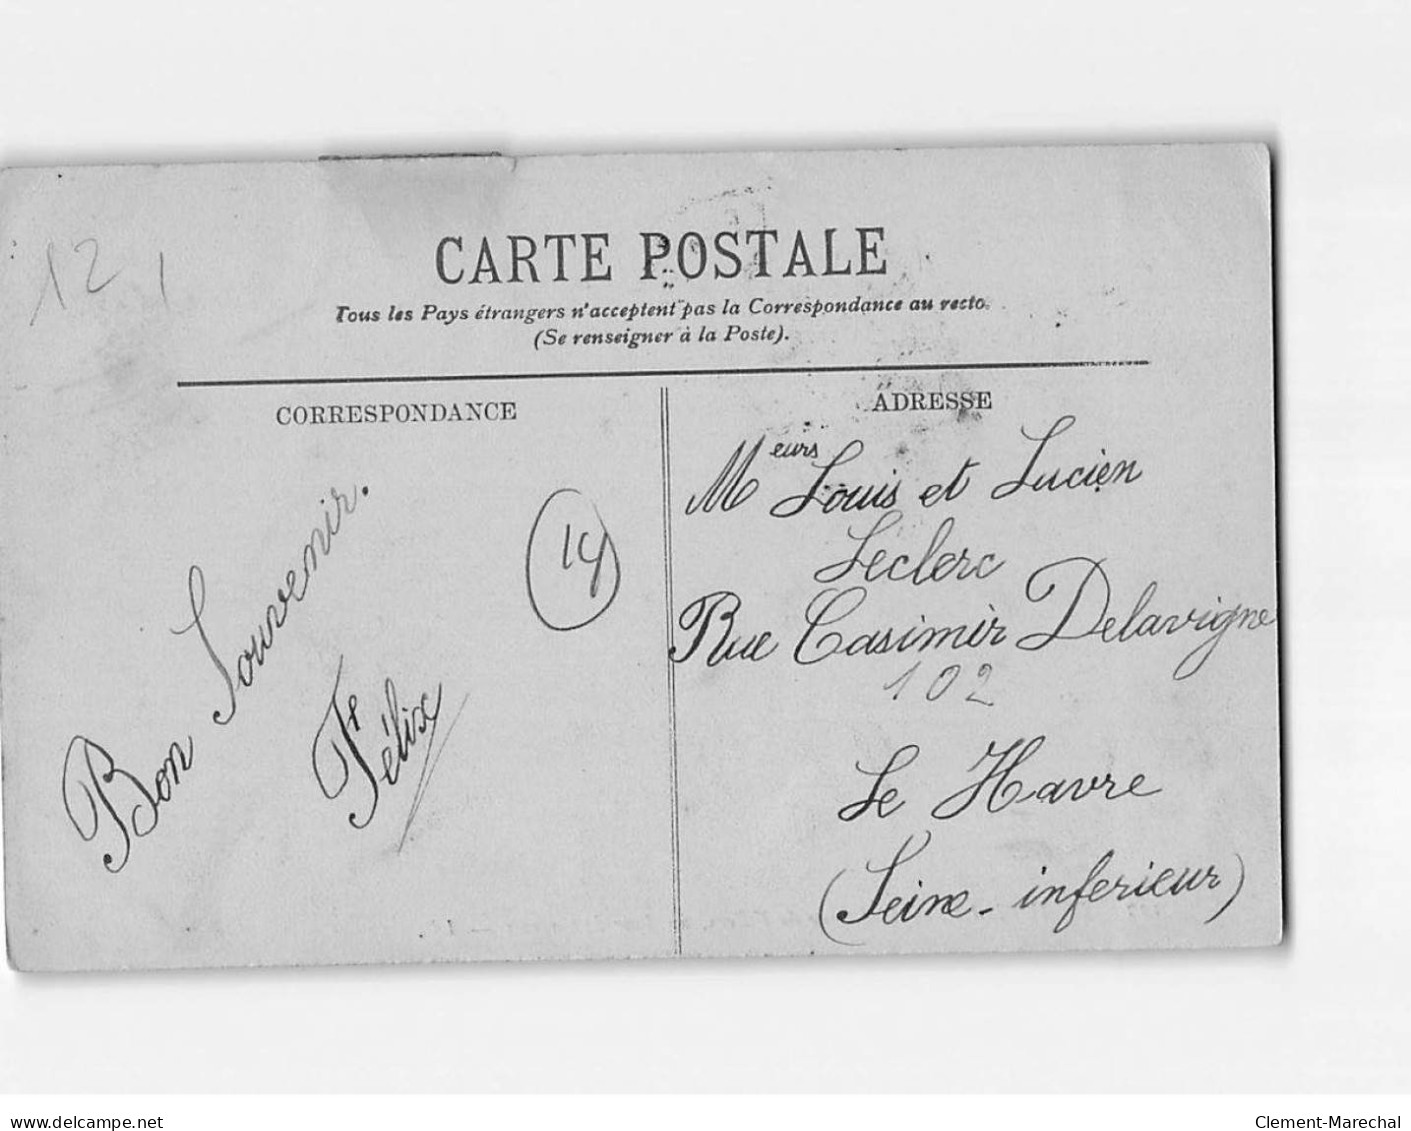 12 1
CARTE POSTALE
Tous les Pays étrangers n'acceptent pas la Correspondance au recto.
(Se renseigner à la Poste).
CORRESPONDANCE
Bon Souvenir.
Félix
14
ADRESSE
Meurs Louis et Lucien
Leclerc
Rue Casimir Delavigne
102
Le Havre
(Seine-inferieur)
www.delcampe.net
Clement-Marechal